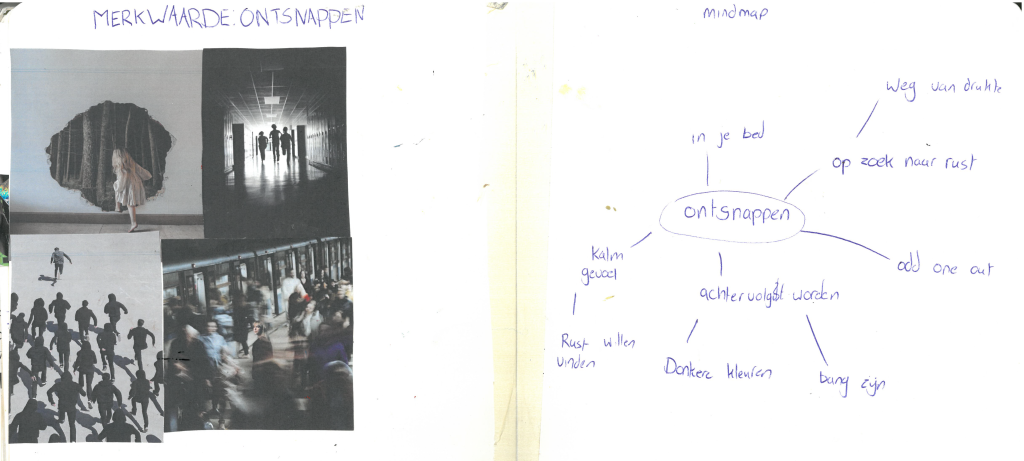 MERKWAARDE: ONTSNAPPEN
mindmap
weg van drukte
in je bed
op zoek naar rust
ontsnappen
Kalm
gevoel
odd one out
achtervolgd worden
Rust willen
vinden
Donkere kleuren
bang zijn